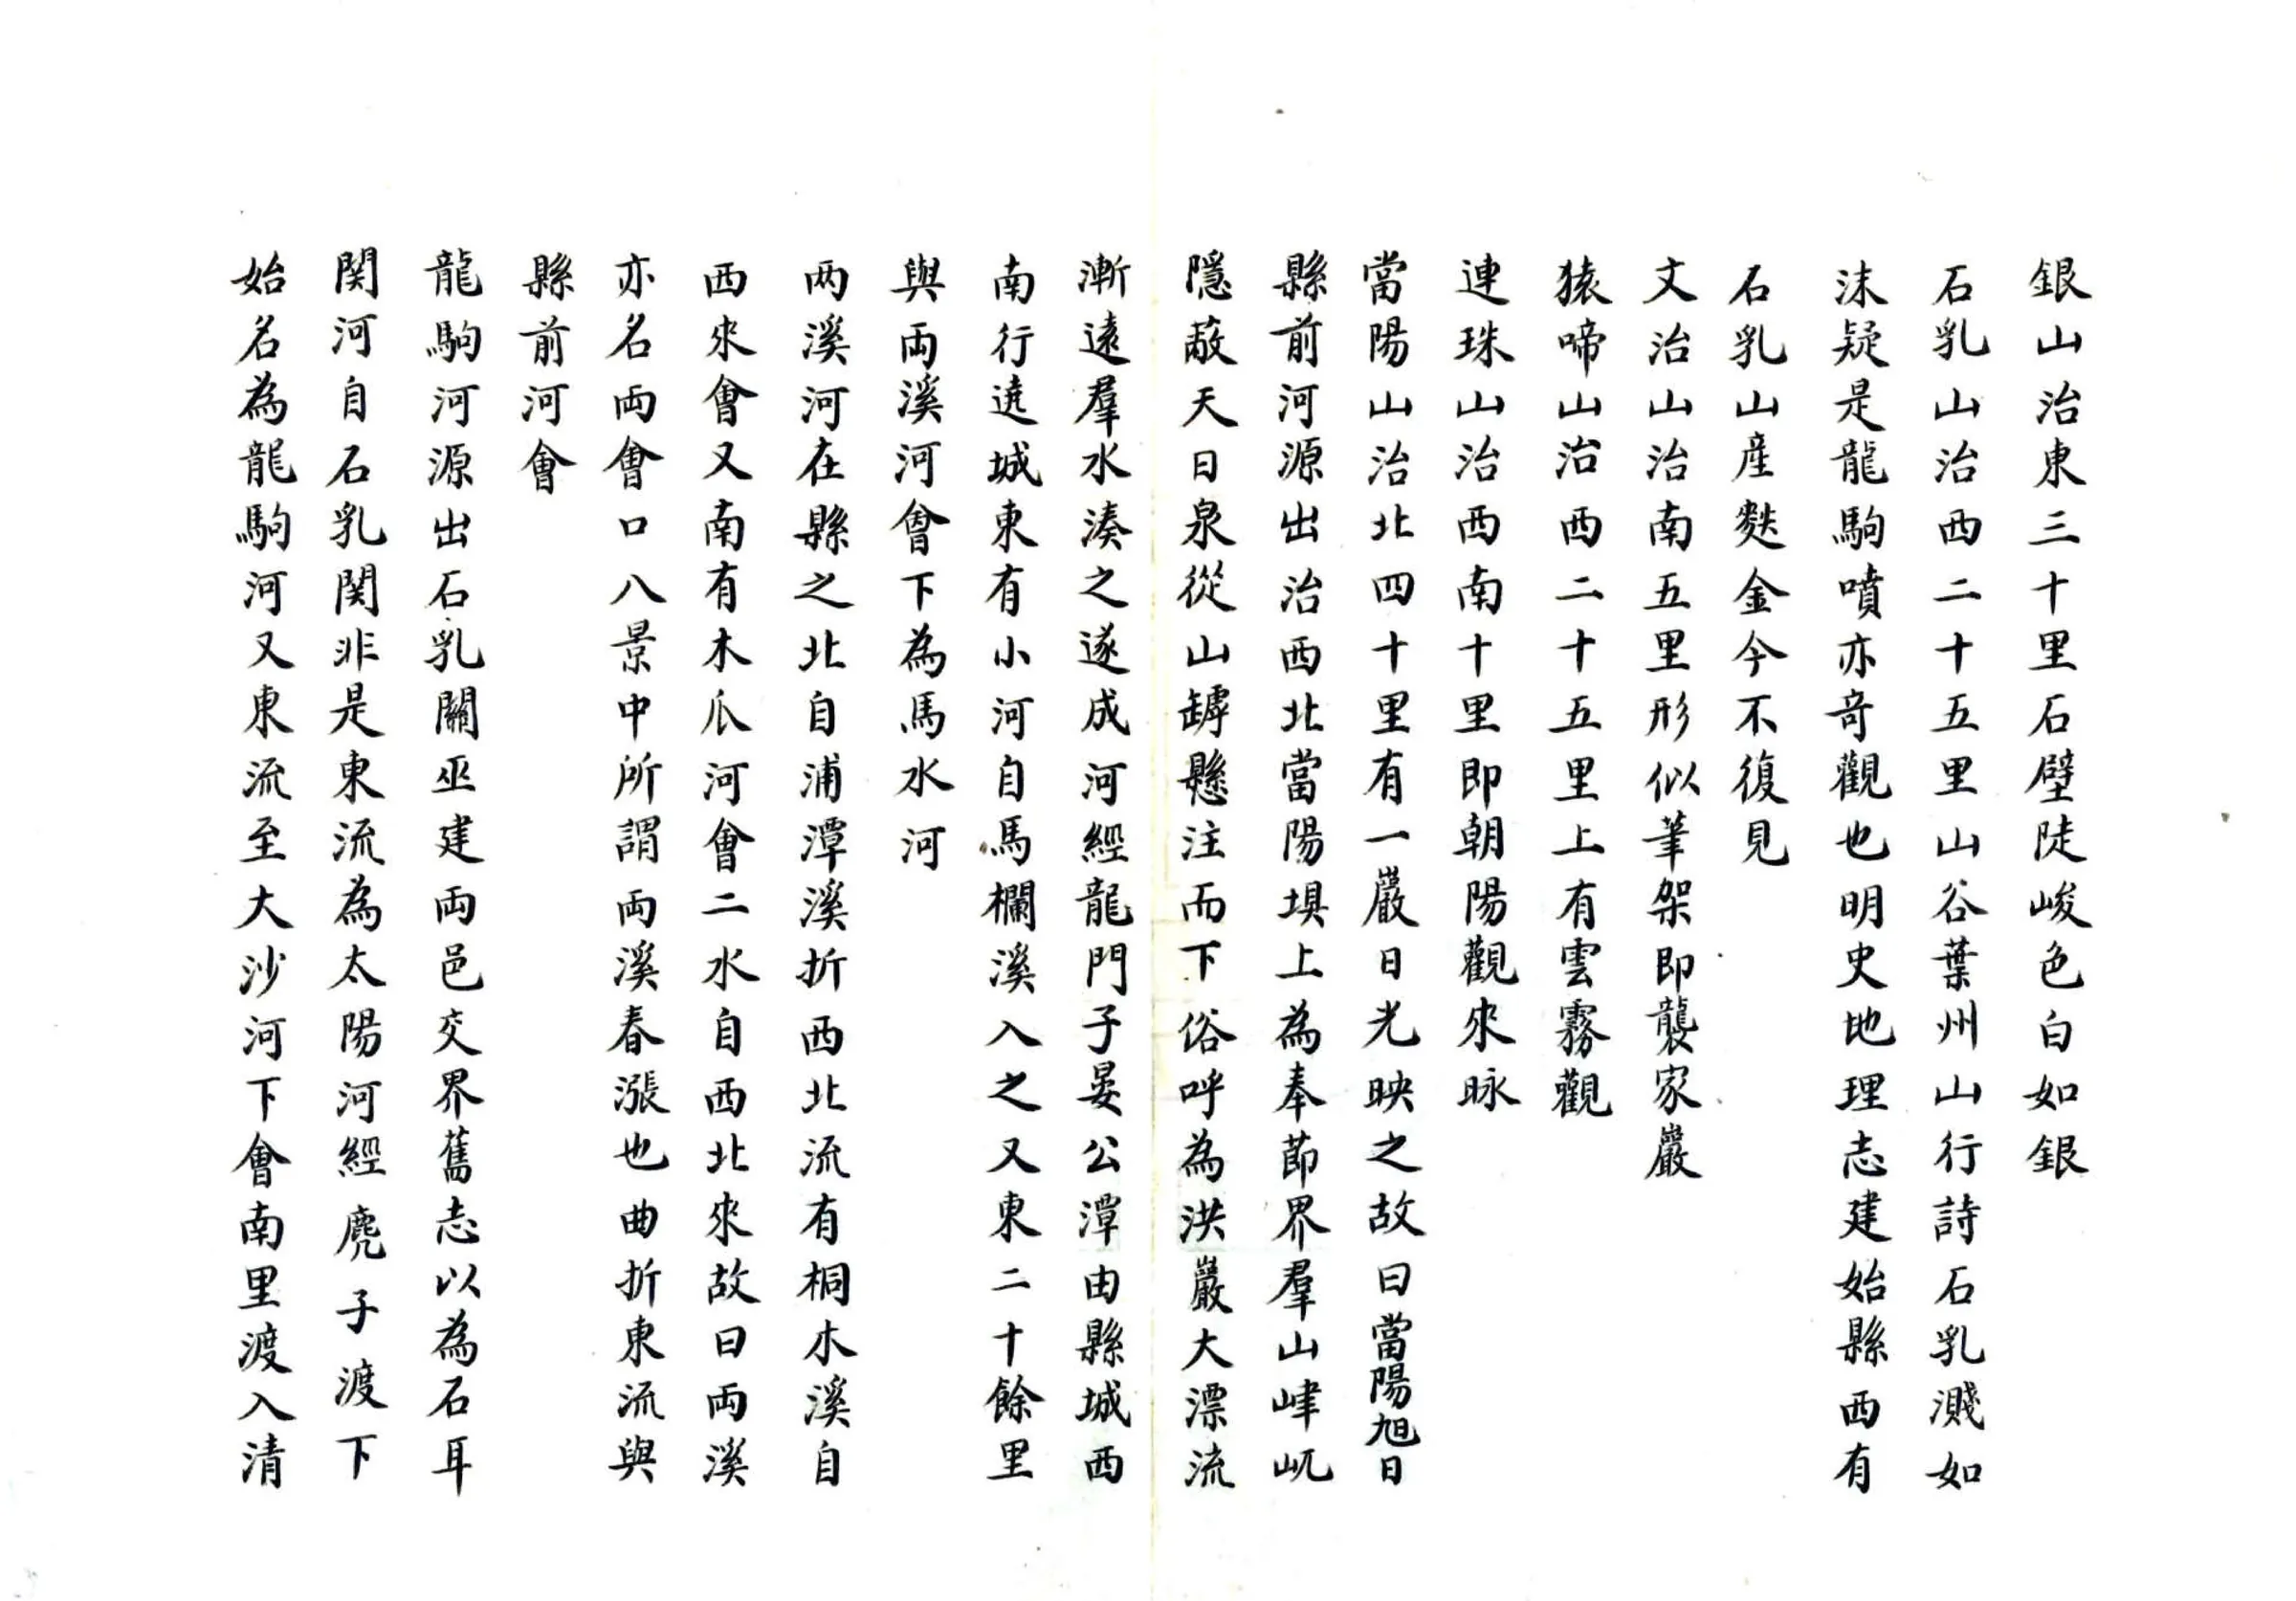 銀山治東三十里石壁陡峻色白如銀
石乳山治西二十五里山谷葉州山行詩石乳濺如
沫疑是龍駒噴亦奇觀也明史地理志建始縣西有
石乳山產麩金今不復見
文治山治南五里形似筆架即龔家巖
猿啼山治西二十五里上有雲霧觀
連珠山治西南十里即朝陽觀來脉
當陽山治北四十里有一巖日光映之故曰當陽旭日
縣前河源出治西北當陽垻上為奉節界羣山峍屼
隱蔽天日泉從山罅懸注而下俗呼為洪巖大漂流
漸遠羣水湊之遂成河經龍門子晏公潭由縣城西
南行遶城東有小河自馬欄溪入之又東二十餘里
與兩溪河會下為馬水河
两溪河在縣之北自浦潭溪折西北流有桐木溪自
西來會又南有木瓜河會二水自西北來故曰兩溪
亦名兩會口八景中所謂兩溪春漲也曲折東流與
縣前河會
龍駒河源出石乳關巫建兩邑交界舊志以為石耳
関河自石乳関非是東流為太陽河經麂子渡下
始名為龍駒河又東流至大沙河下會南里渡入清